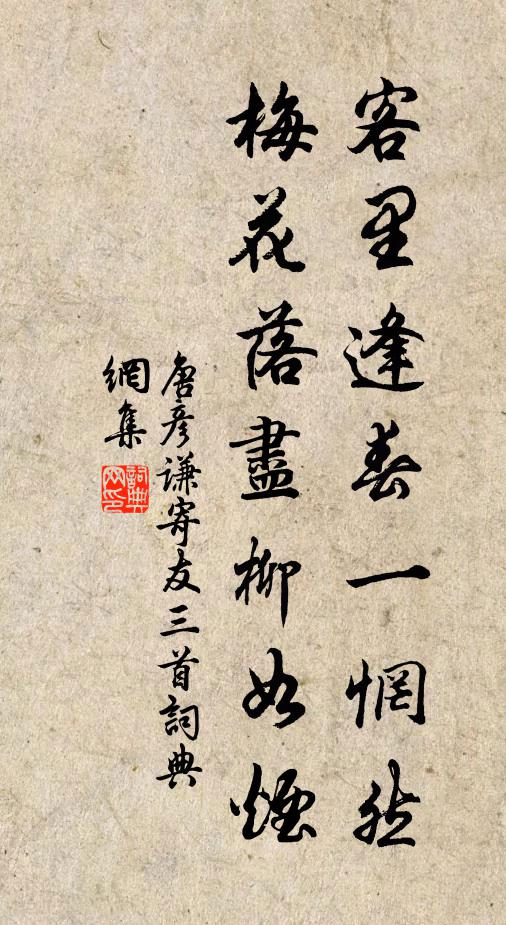 客里逢春一惘然
梅花落盡柳如煙
唐彥謙寄友三首詞典
網集
詞典網印